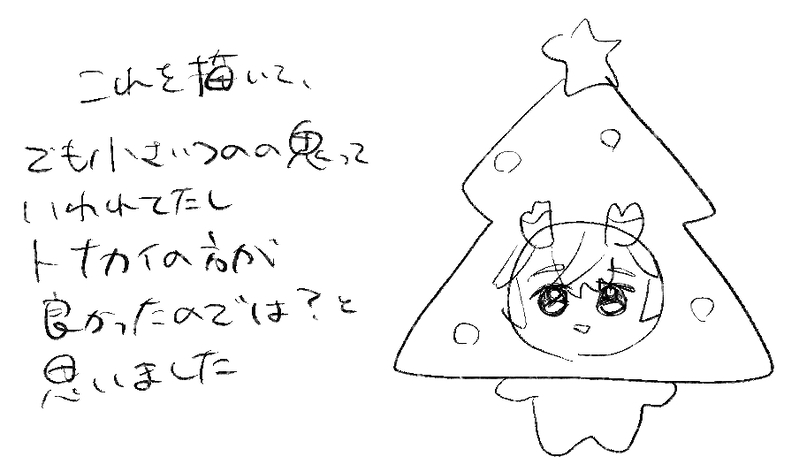 これを描いて、
でも小さいつのの鬼って
いわれてたし
トナカイの方が
良かったのでは？と
思いました